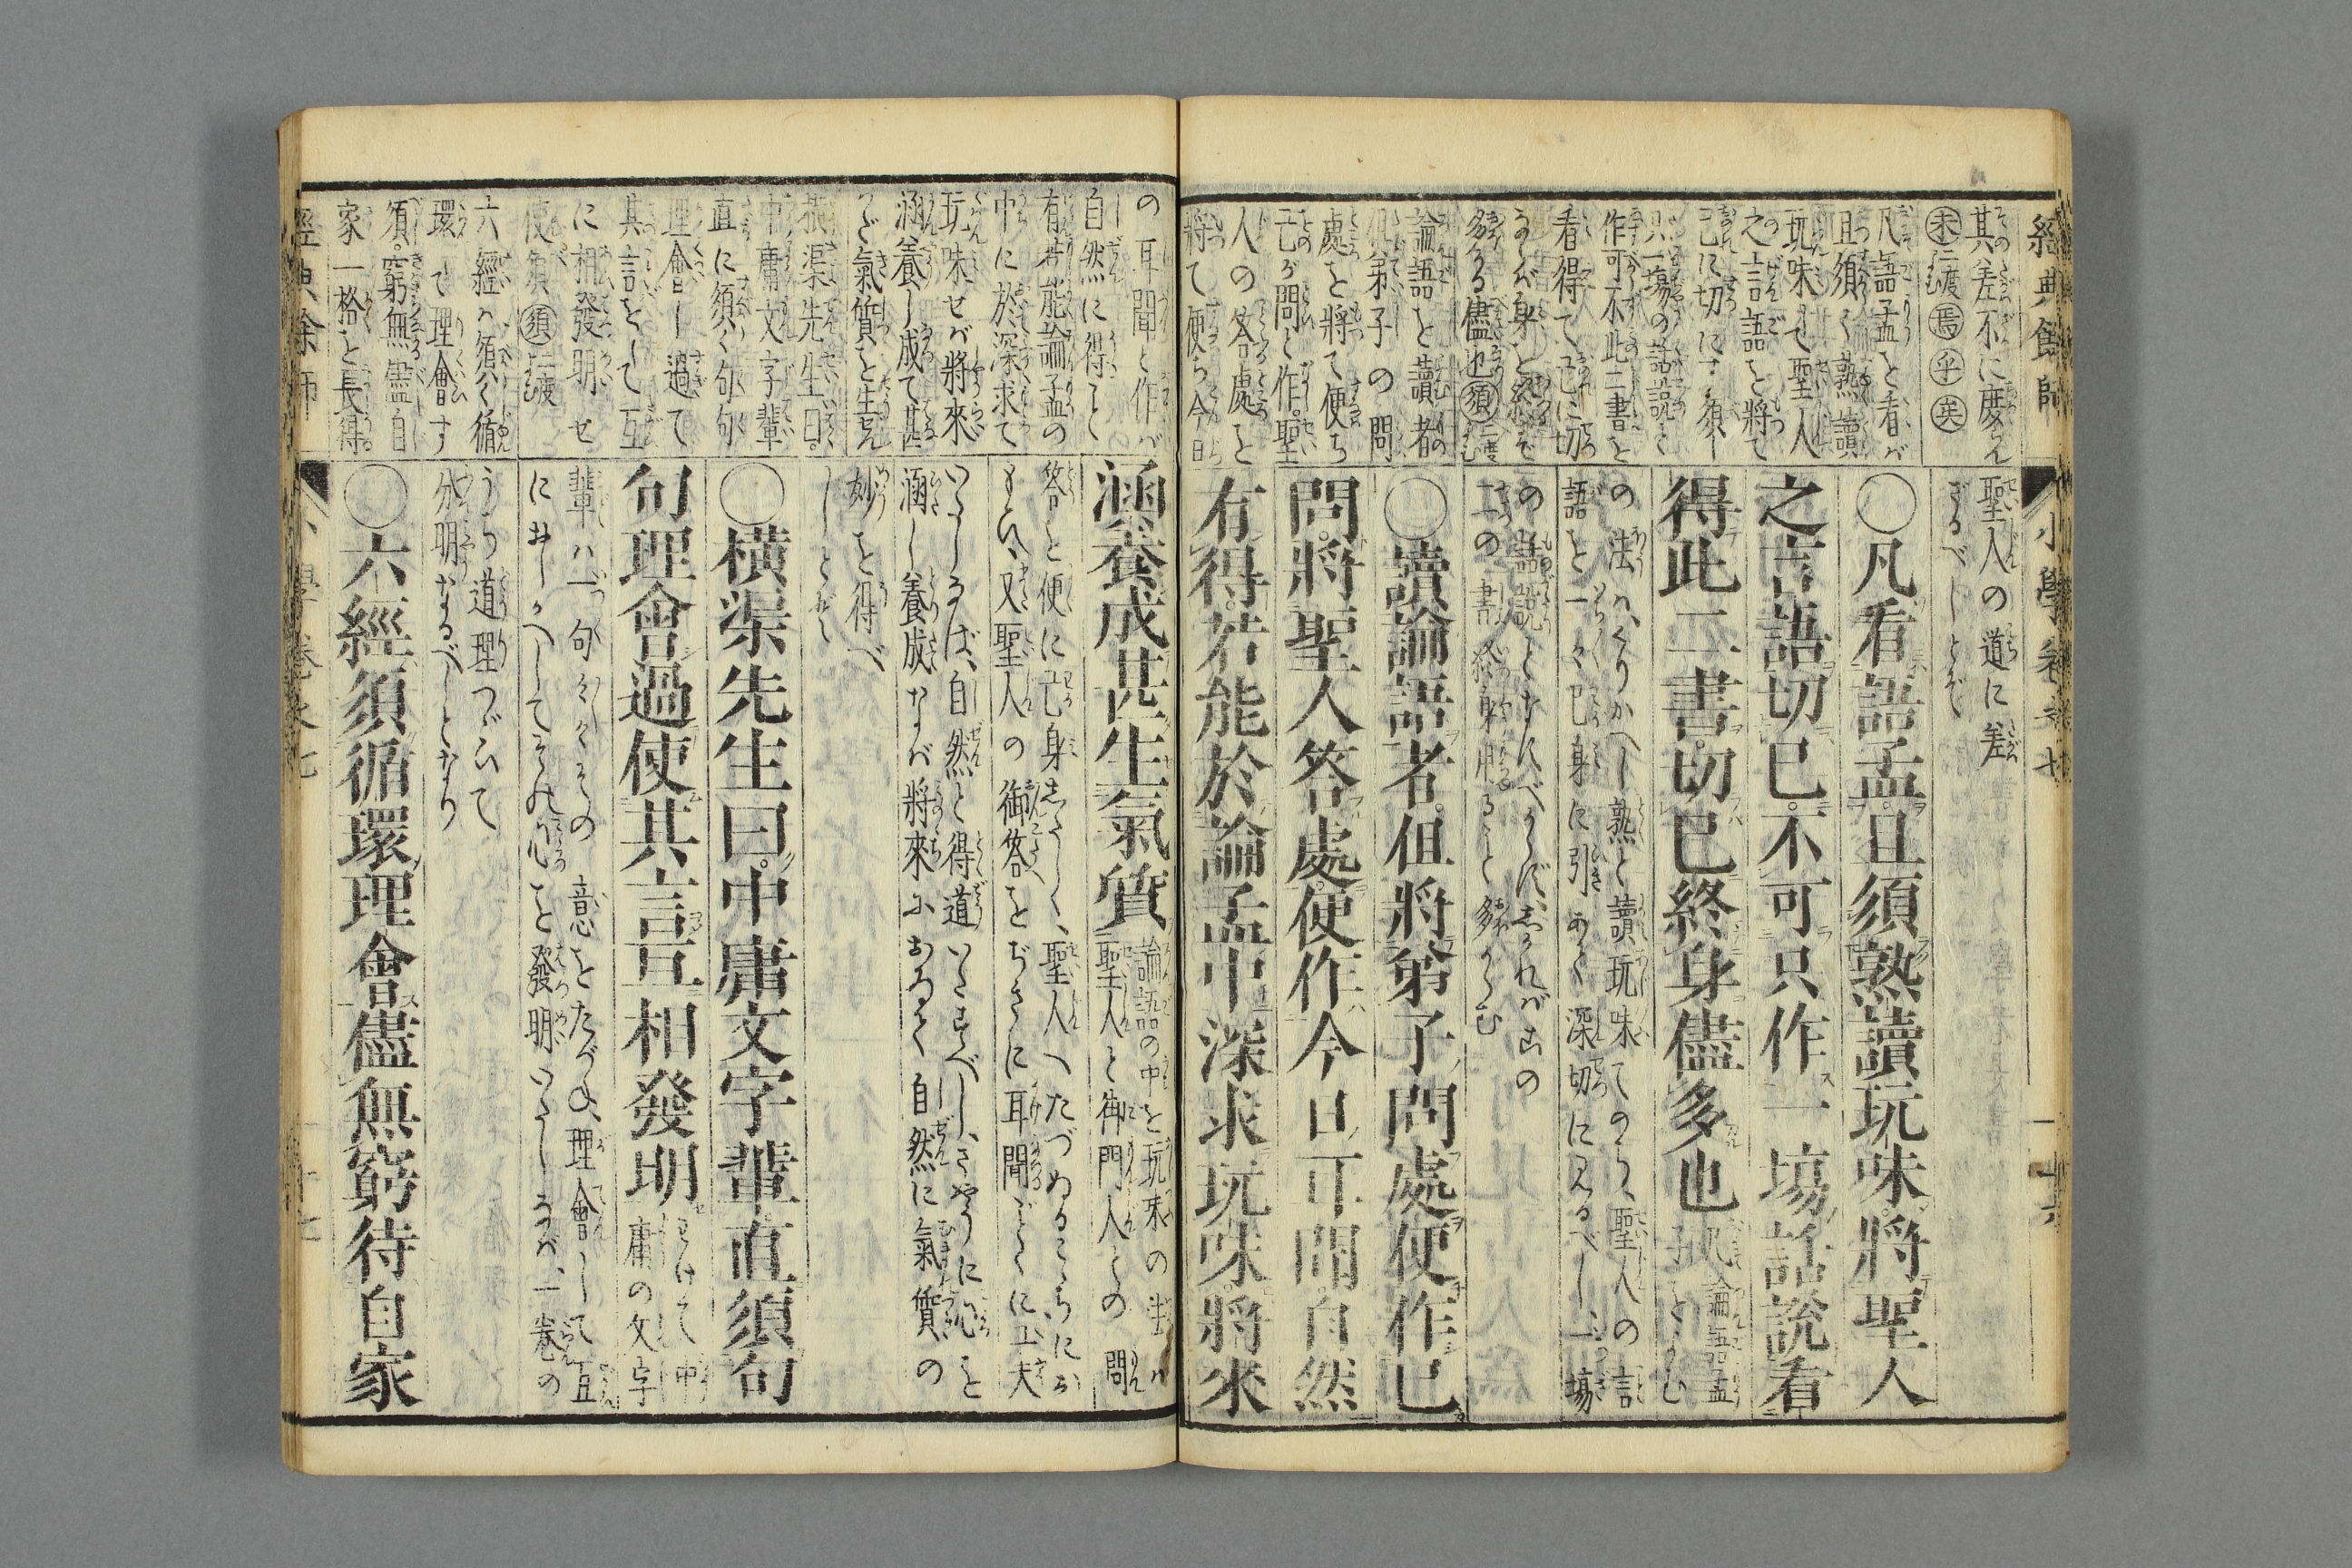 經典餘師
小學卷之七
其差不に庶らん
未二度焉乎矣
凡語孟を看ば
且須く熟讀
玩味て聖人
之言語を將て
己に切にす須し
只一塲の話説と
作可不此二書を
看得て己に切
ならば身を終まで
多なる儘也須二度
論語を讀者
但弟子の問
處を將て便ち
己が問と作聖
人の答處を
將て便ち今日
聖人の道に差
ざるべしとぞ
〇凡看語孟且須熟讀玩味將聖人
之言語切己不可只作一塲話説看
得此二書切己終身儘多也
凡論語孟
子をよむ
の法ハくりかへし熟と讀玩味てのち、聖人の言
語を一々己身に引あて深切に見るべし、一塲
の話説となすべからず、しかればこの
二の書終身用ると多からむ
〇讀論語者但將弟子問處便作己
問將聖人答處便作今日耳聞自然
有得若能於論孟中深求玩味將來
の耳聞と作バ
自然に得こと
有若能論孟の
中に於深求て
玩味せバ將來
涵養し成て甚
だ氣質を生せん
横渠先生曰
中庸文字輩
直に須く句句
理會し過て
其言をして互
に相發明せ
使須須二度
六經ハ須く循
環して理會す
須窮無儘自
家一格を長得
涵養成甚生氣質
論語の中を玩味の法ハ
聖人と御門人との問
答を便に己身志たしく、聖人へたづぬるこゝろにお
もひ、又聖人の御答をぢきに耳聞ごとくに工夫
いたしなば、自然と得道いたすべし、さやうに心を
涵し養成なバ將來ふおゐて自然に氣質の
妙を得べ
しとぞ
〇横渠先生曰中庸文字輩直須句
句理會過使其言互相發明
とけて中
庸の文字
輩ハ一句々々その意をたづね、理會して互
におしかへしてその心を發明いたしなバ、一巻の
うち道理つゞいて
分明なるべしとなり
〇六經須循環理會儘無窮待自家
經典餘師
小學卷之七